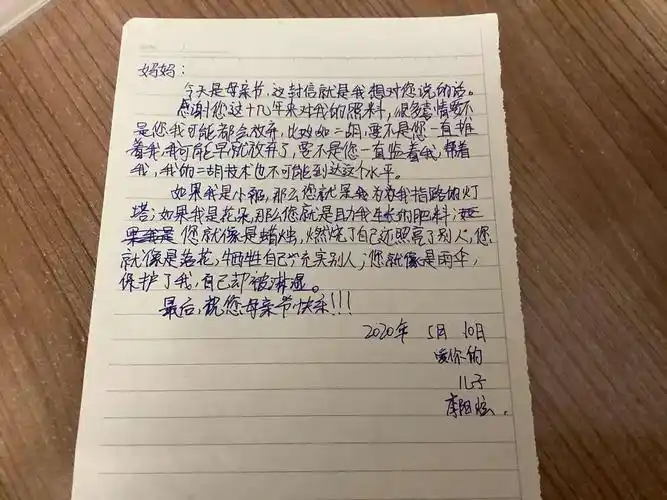 妈妈：
今天是母亲节，这封信就是我想对您说的话。
感谢您这十几年来对我的照料，很多事情要不
是您我可能都会放弃，比如二胡，要不是您一直推
着我，我可能早就放弃了，要不是您一直监着我，帮着
我，我的二胡技术也不可能到达这个水平。
如果我是小船，那么您就是我为我指路的灯
塔；如果我是花朵，那么您就是助我生长的肥料；
您就像是蜡烛，燃烧了自己还照亮了别人，您
就像是落花，牺牲自己充实别人；您就像是雨伞，
保护了我，自己却被淋湿。
最后，祝您母亲节快乐！！！
2020年 5月 10日
爱你的
儿子
李阳